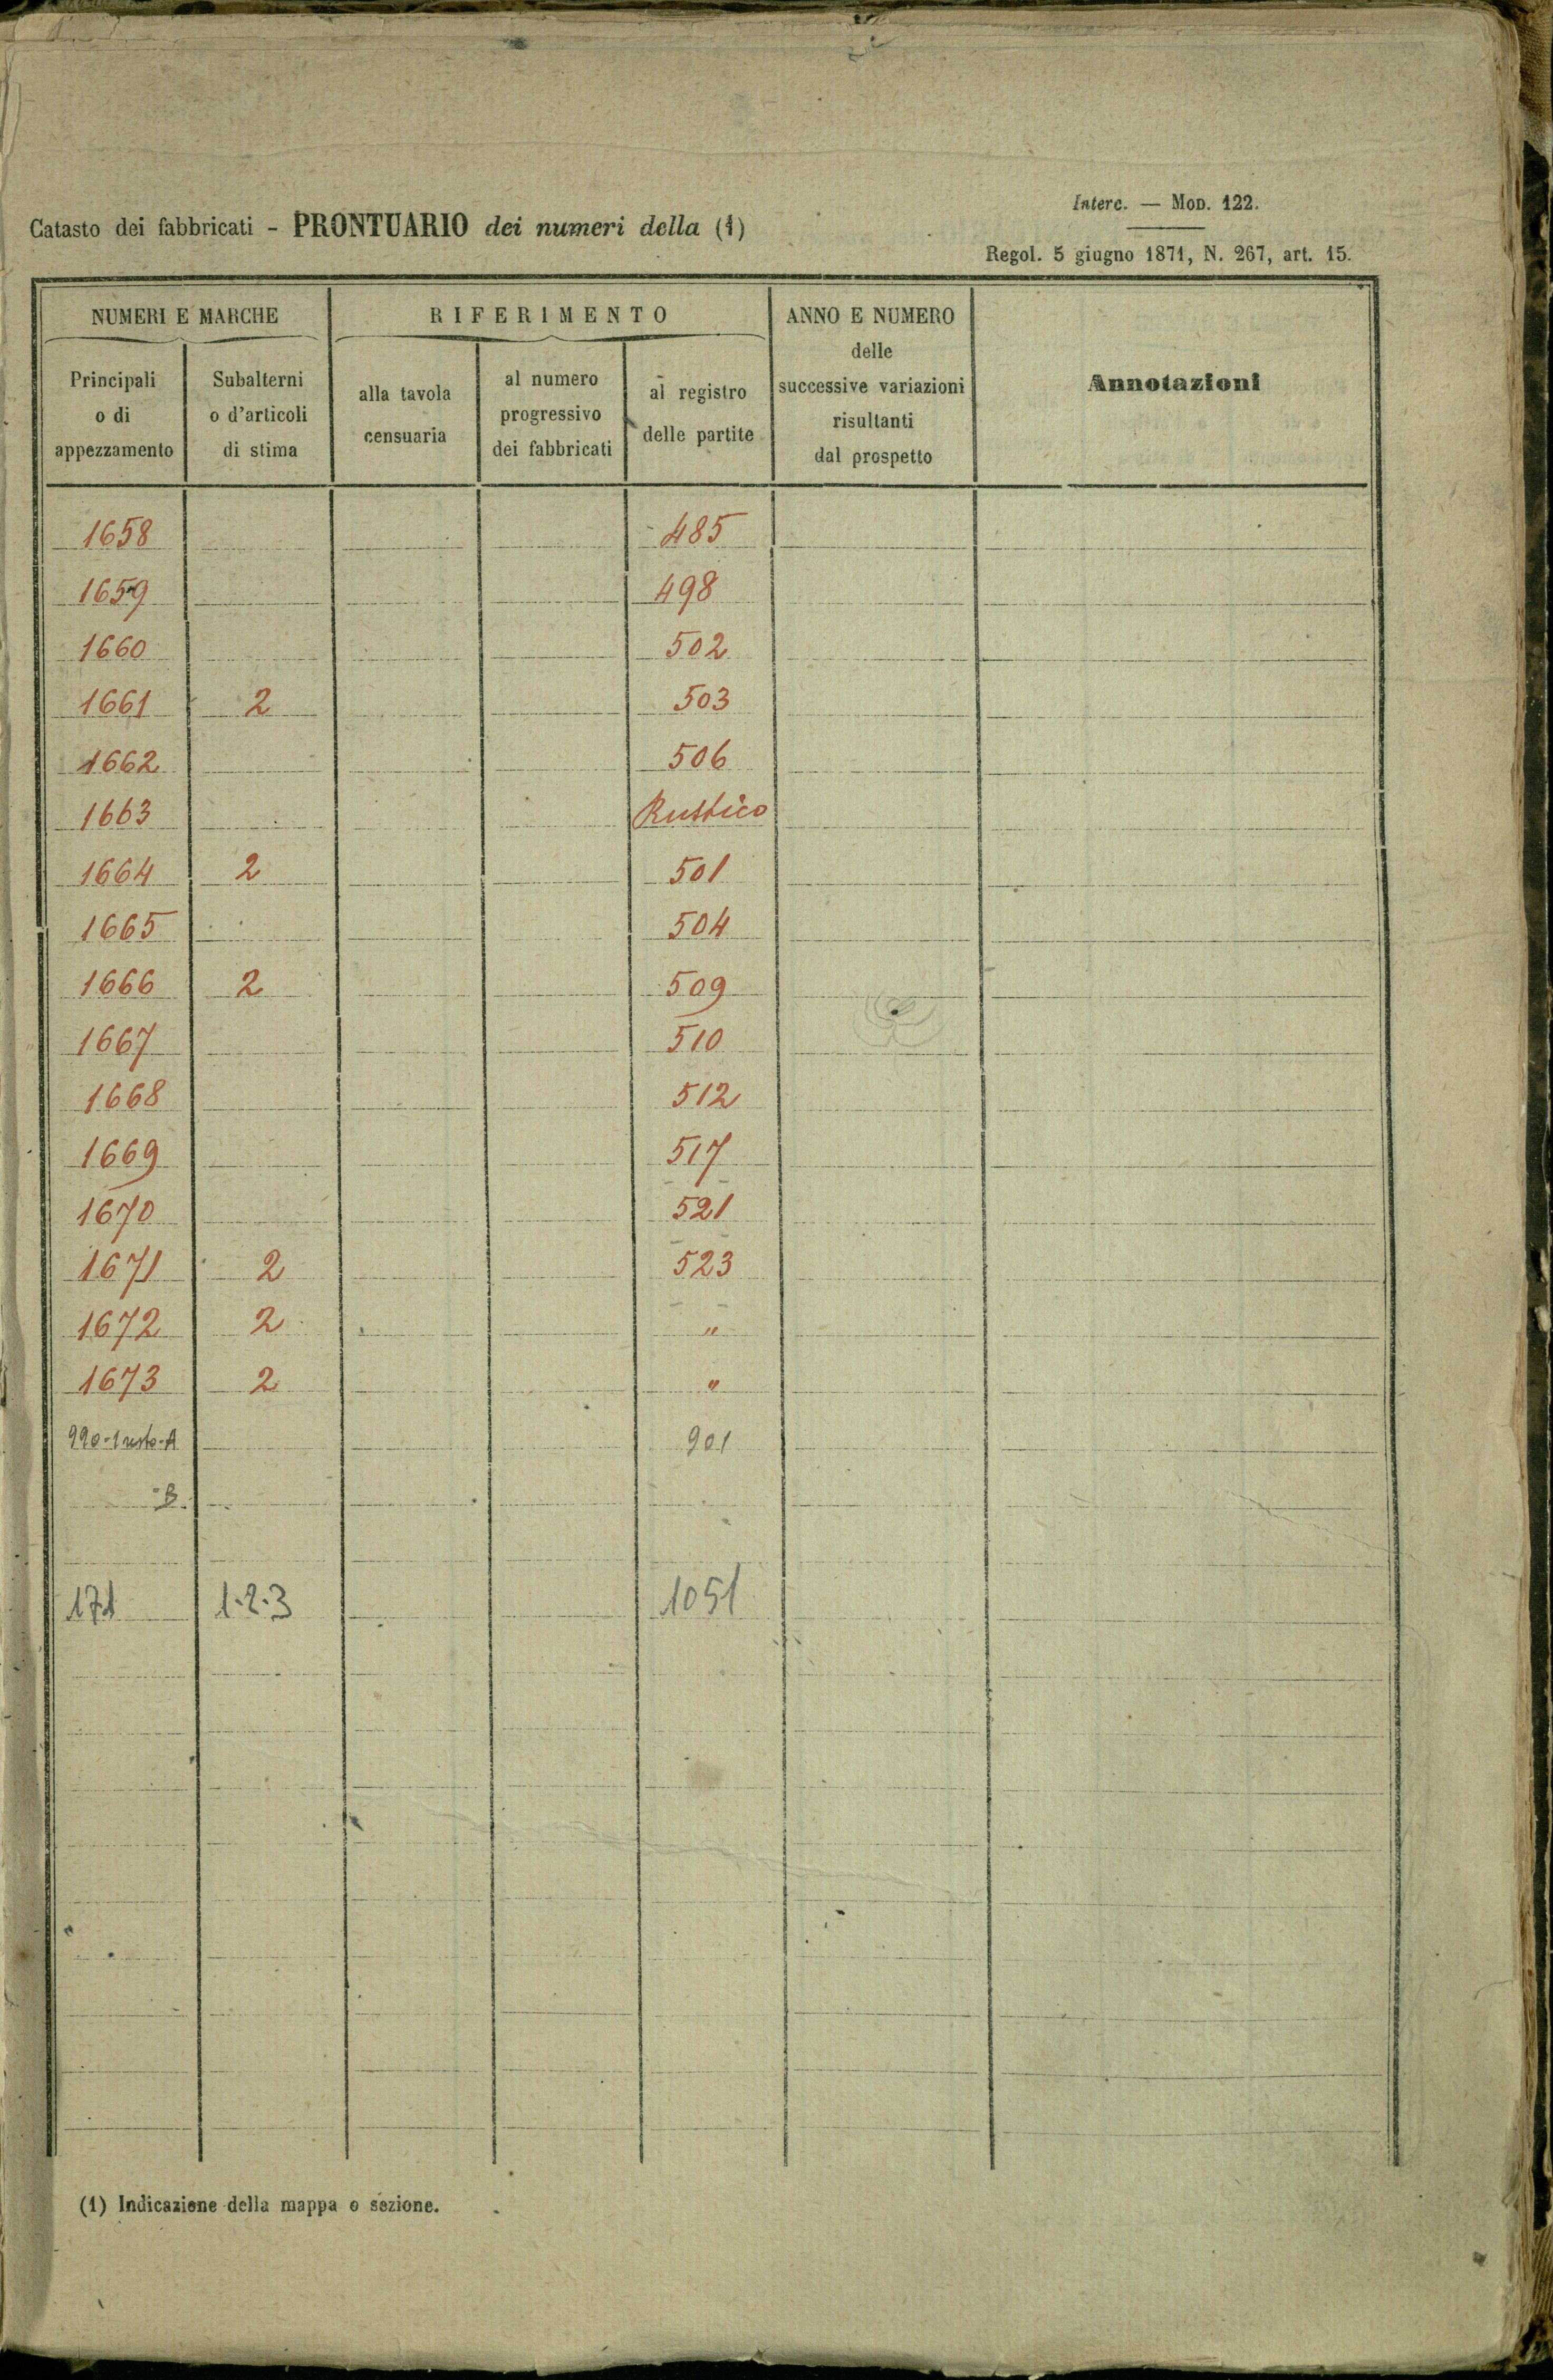 Interc. — MOD. 122.
Catasto dei fabbricati - PRONTUARIO dei numeri della (1)
Regol. 5 giugno 1871, N. 267, art. 15.
NUMERI E MARCHE RIFERIMENTO ANNO E NUMERO delle successive variazioni risultanti dal prospetto Annotazioni
Principali o di appezzamento Subalterni o d'articoli di stima alla tavola censuaria al numero progressivo dei fabbricati al registro delle partite
1658 485
1659 498
1660 502
1661 2 503
1662 506
1663 Rustico
1664 2 501
1665 504
1666 2 509
1667 510
1668 512
1669 517
1670 521
1671 2 523
1672 2 "
1673 2 "
990-1 resto-A 901
-B
171 1-2-3 1051
(1) Indicazione della mappa o sezione.